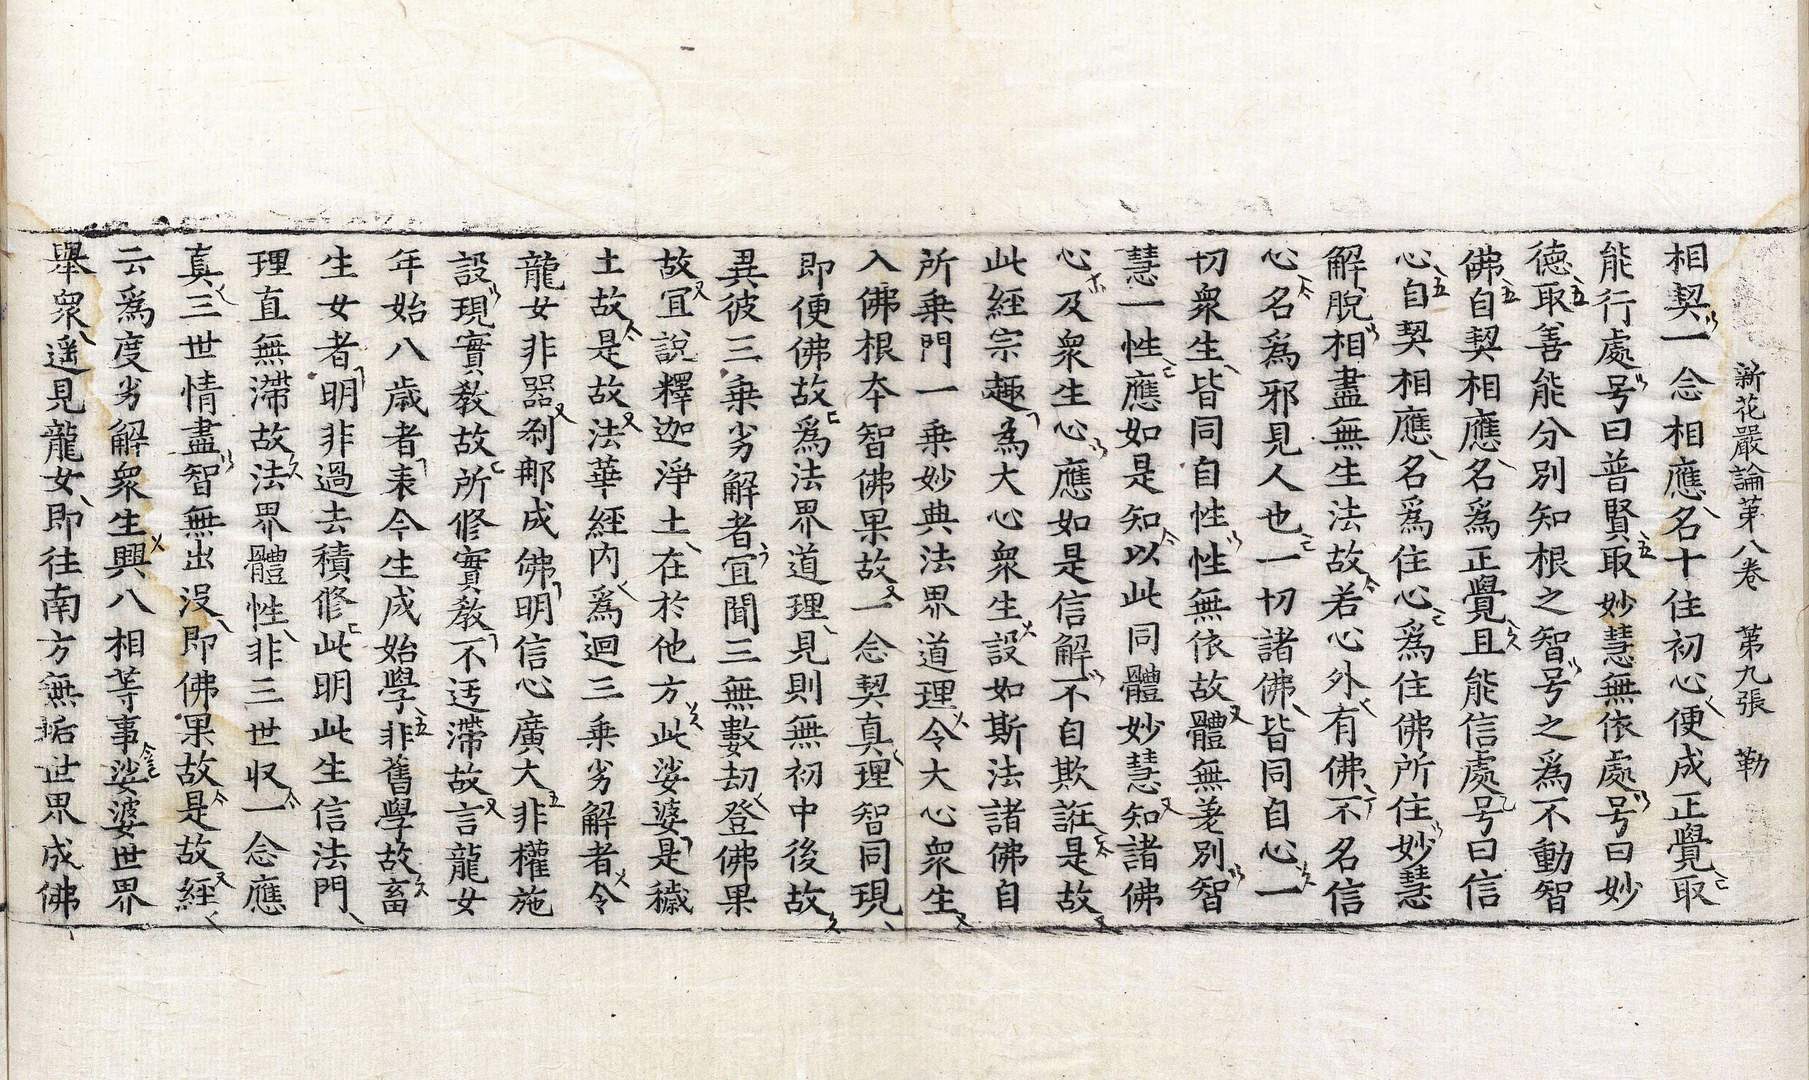 新花嚴論第八卷　第九張　勒
相契一念相應名十住初心便成正覺取
能行處号曰普賢取妙慧無依處号曰妙
德取善能分別知根之智号之為不動智
佛自契相應名為正覺且能信處号曰信
心自契相應名為住心為住佛所住妙慧
解脫相盡無生法故若心外有佛不名信
心名為邪見人也一切諸佛皆同自心一
切衆生皆同自性性無依故體無差別智
慧一性應如是知以此同體妙慧知諸佛
心及衆生心應如是信解不自欺誑是故
此經宗趣為大心衆生設如斯法諸佛自
所乗門一乗妙典法界道理令大心衆生
入佛根夲智佛果故一念契真理智同現
即便佛故為法界道理見則無初中後故
異彼三乗劣解者宜聞三無數劫登佛果
故宜說釋迦淨土在於他方此娑婆是穢
土故是故法華經內為迴三乗劣解者令
龍女非器刹郍成佛明信心廣大非權施
設現實教故所修實教不迃滯故言龍女
年始八歳者表今生成始學非舊學故畜
生女者明非過去積修此明此生信法門
理直無滯故法界體性非三世収一念應
真三世情盡智無出沒即佛果故是故經
云為度劣解衆生興八相等事娑婆世界
舉衆遥見龍女即往南方無垢世界成佛